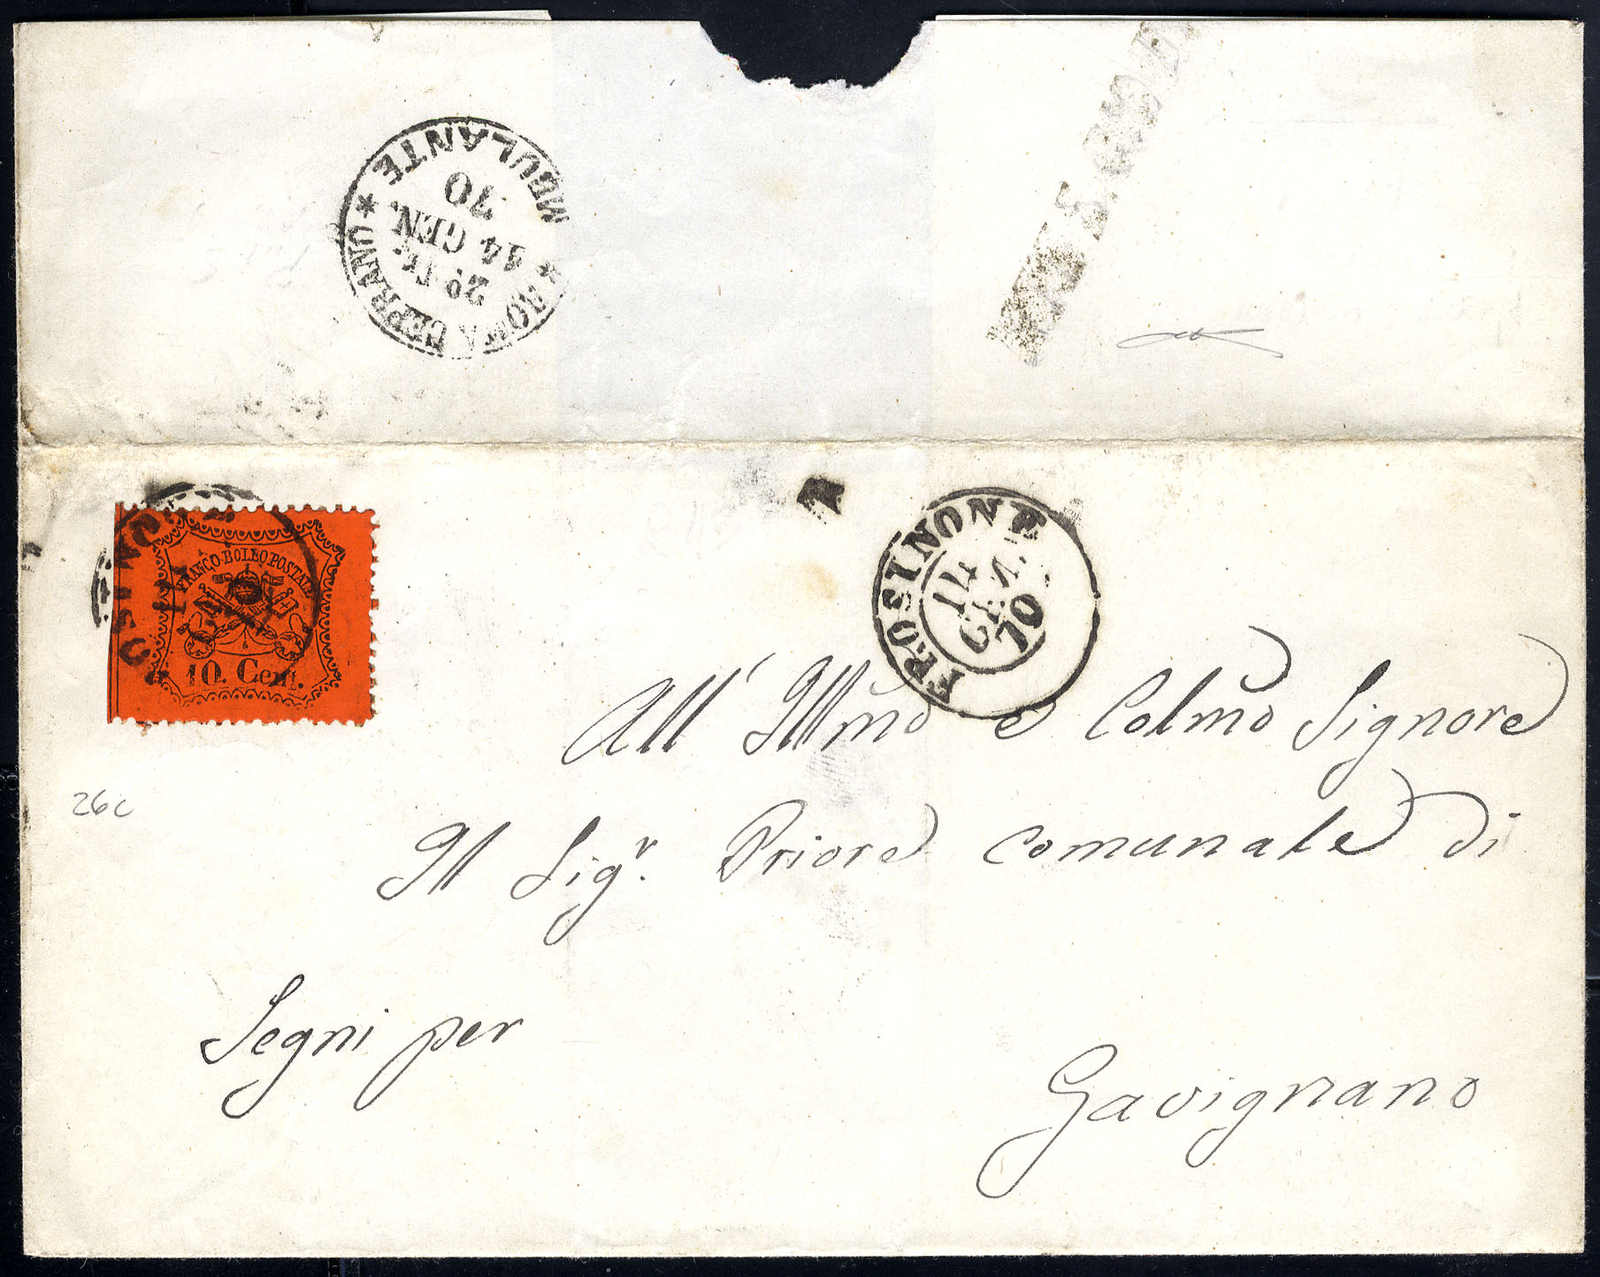 AMBULANTE
* ROMA CEPRANO *
2º
14 GEN.
70
FRANCO BOLLO POSTALE
10. Cent.
FROSINONE
14
GEN
70
All' Illmo e Colmo Signore
Il Sigr. Priore comunale di
Segni per
Gavignano
26c